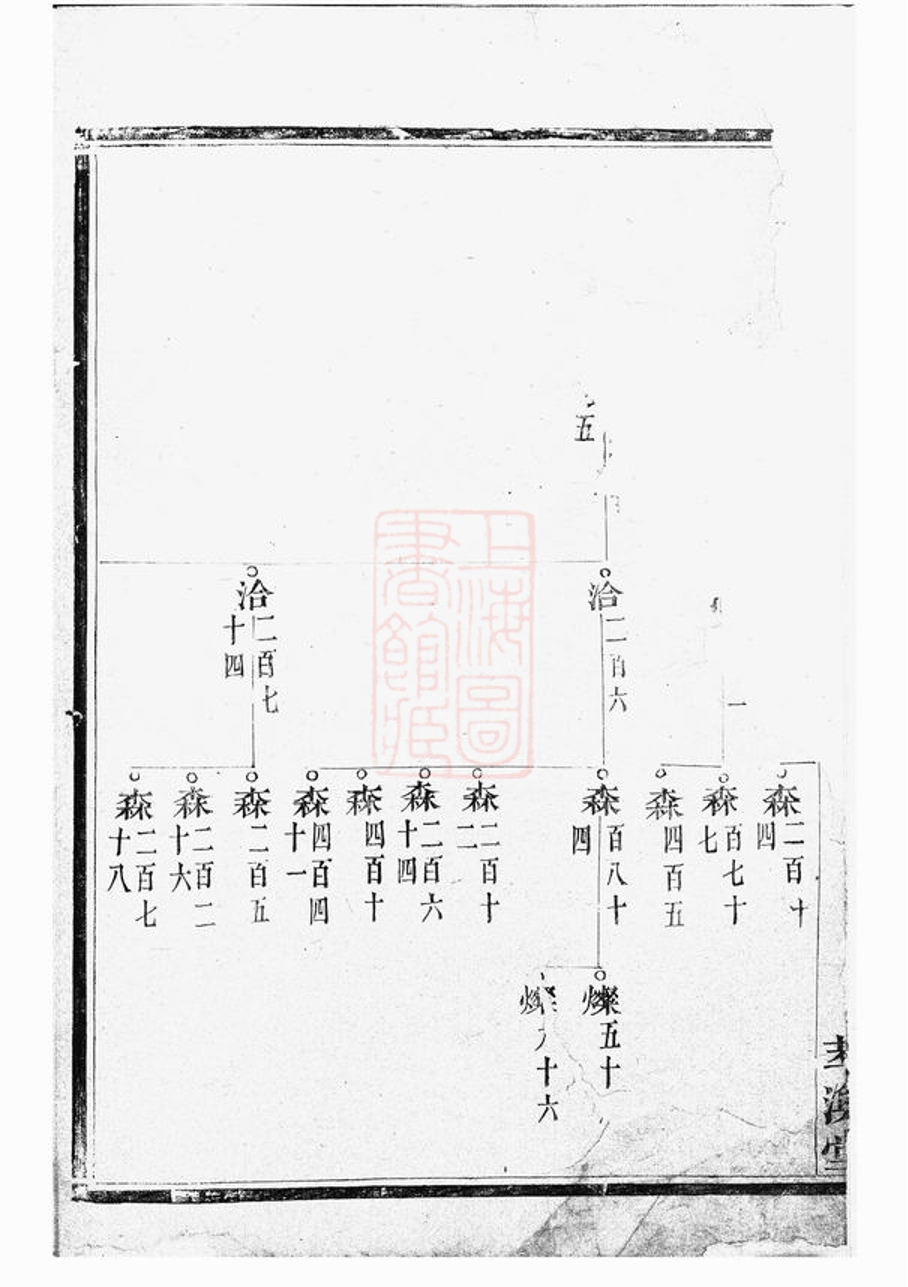 五
洽二百六
洽二百七十四
森二百十四
森百七十七
森四百五
森百八十四
森二百十二
森二百六十四
森四百十
森四百四十一
森二百五
森二百二十六
森二百七十八
燦五十
燦十六
上海圖書館藏